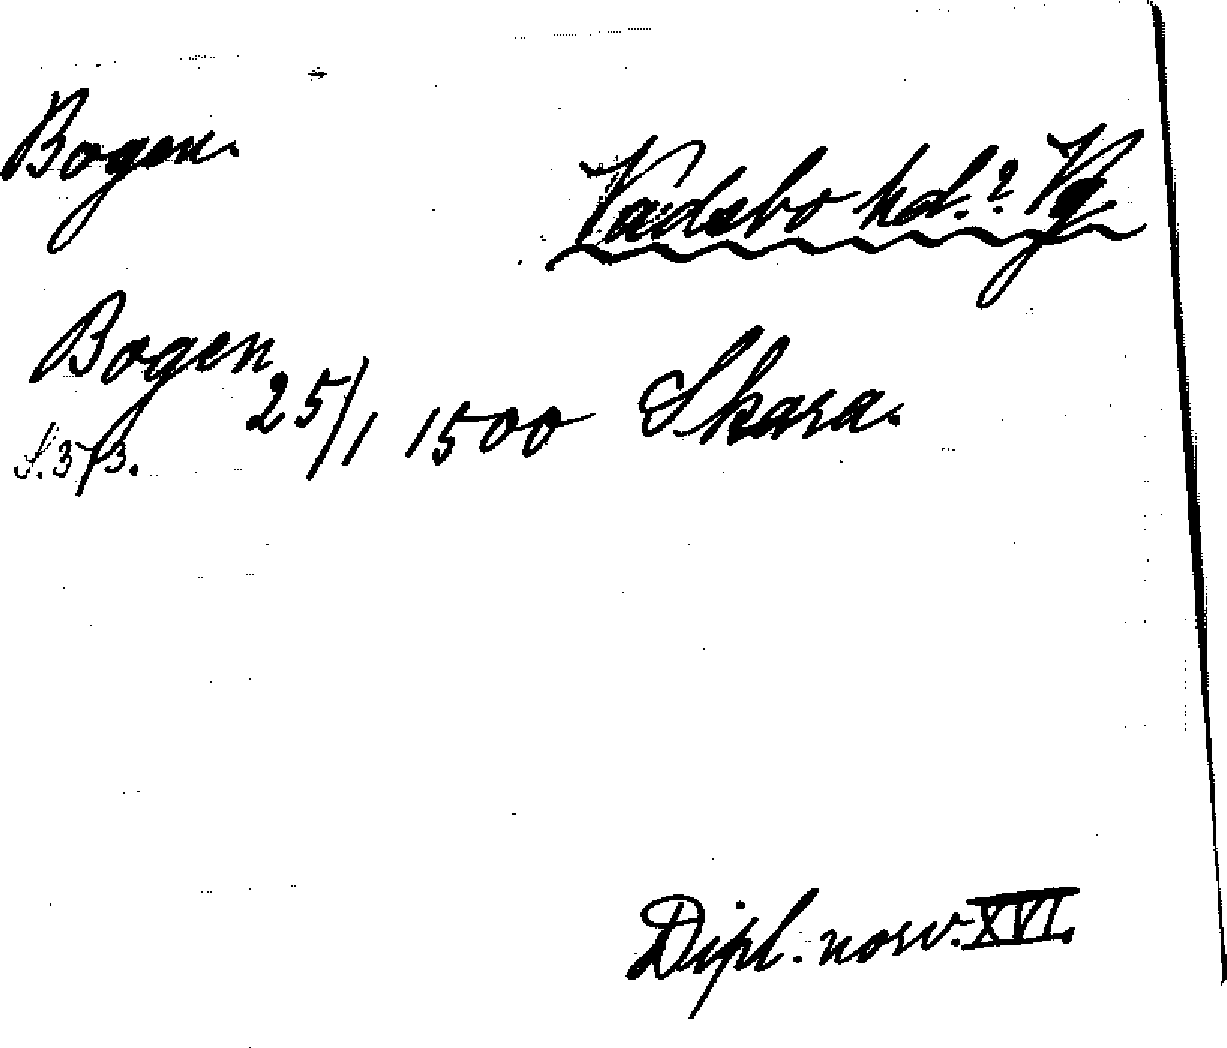 Bogen.
Vadsbo hd.? Vg
Bogen 25/1 1500 Skara.
S. 373.
Dipl. norv. XVI.